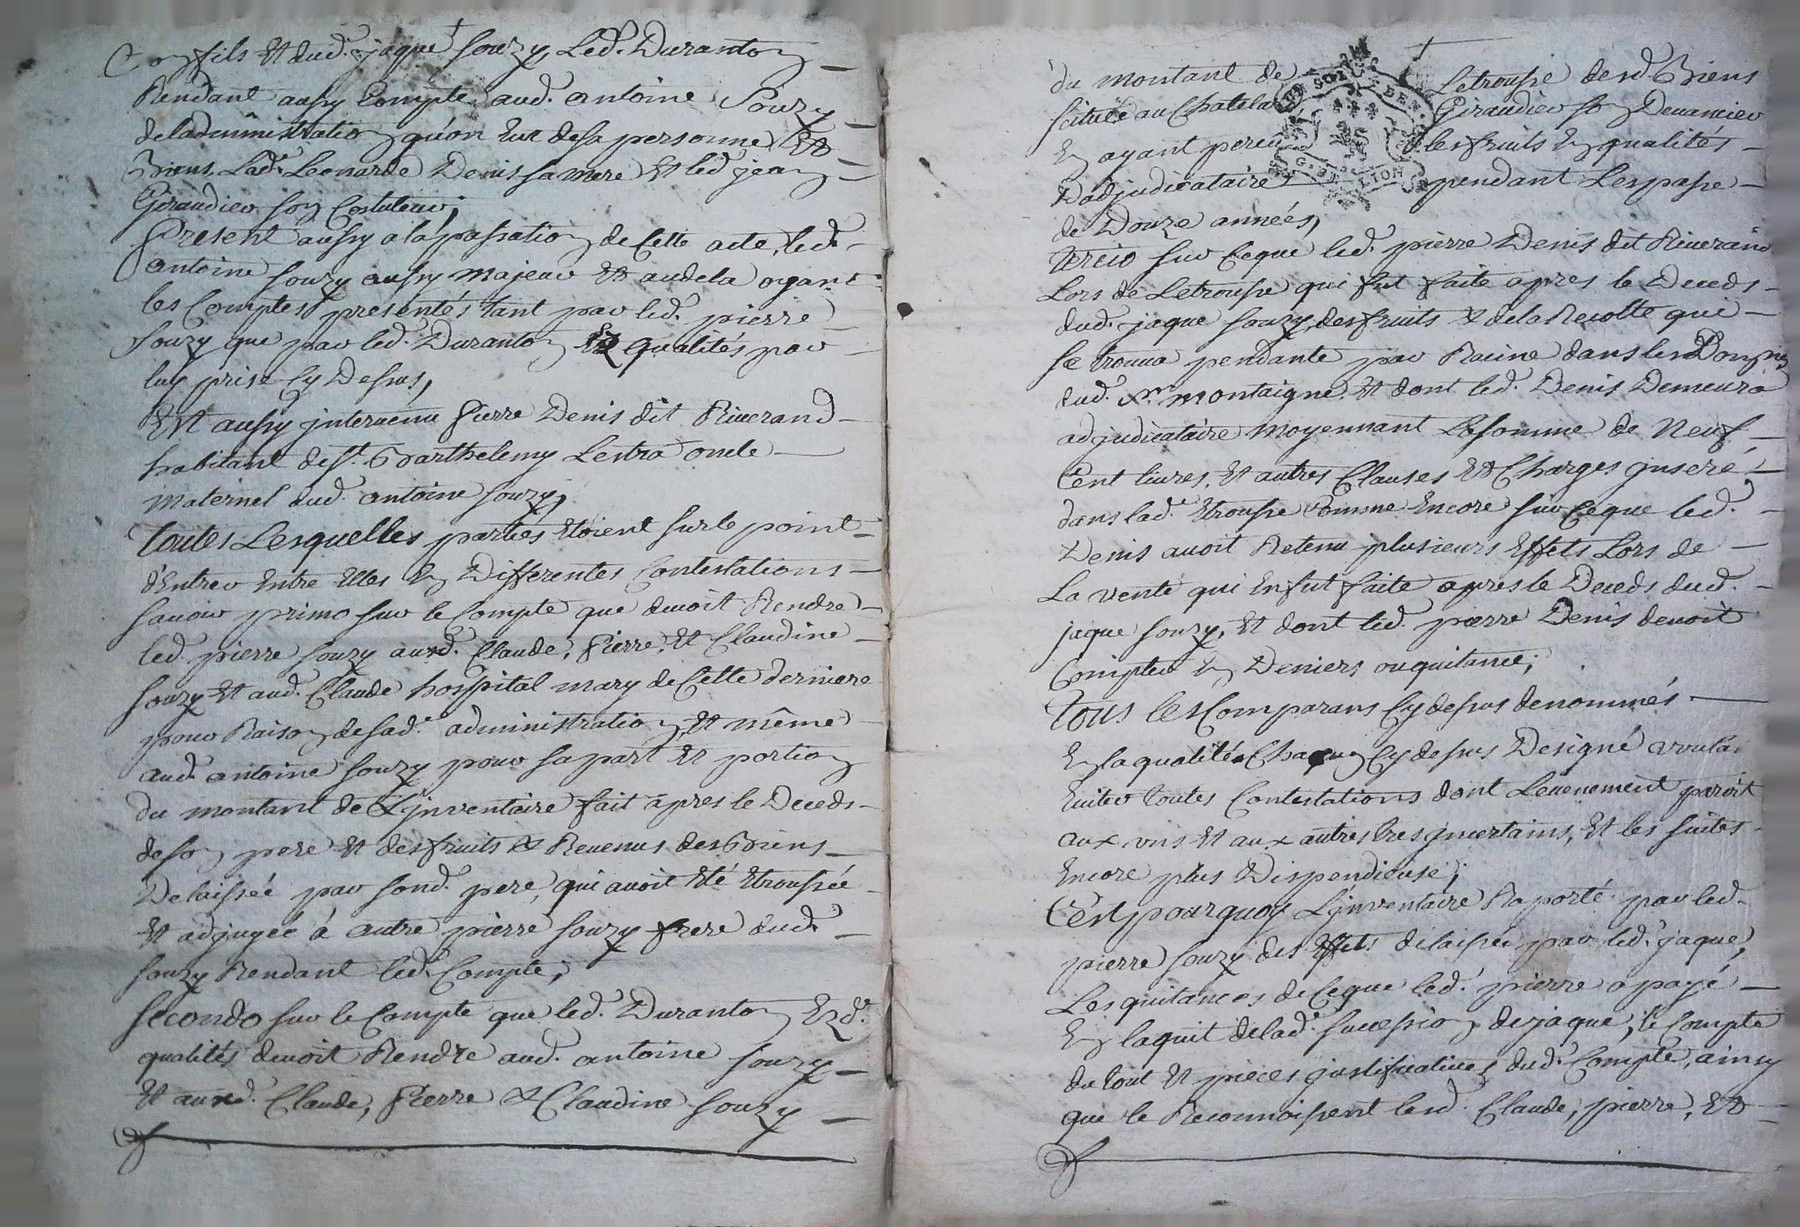 Son fils Et dud. jaque Souzy, Led. Duranton
Rendant aussy Compte aud. antoine Souzy
deladministration qu'on Eut desa personne Et
Biens. Lad. Leonarde Denis sa mere Et led. jean
Giraudier son Cotuteur;
Present aussy a la passation de Cette acte, led.
antoine Souzy aussy majeur Et audela oyant
les Comptes presentés tant par led. pierre
Souzy que par led. Duranton Ez qualités par
luy prise Cy Dessus,
Est aussy jntervenu Pierre Denis dit Riverand
habitant de St. Barthelemy Lestra oncle
maternel dud. antoine Souzy;
Toutes Lesquelles parties Etoient sur le point
d'Entrer Entre Elles En Differentes Contestations
savoir primo sur le Compte que devoit Rendre
led. pierre Souzy auxd. Claude, Pierre, Et Claudine
Souzy Et aud. Claude hospital mary de Cette derniere
pour Raison de sad. administration, Et même
aud. antoine Souzy pour sa part Et portion
du montant de L'jnventaire fait apres le Deceds
de son pere Et des fruits & Revenus des Biens
Delaissée par sond. pere, qui avoit Eté Etroussée
Et adjugée à autre pierre Souzy frere dud.
Souzy Rendant led. Compte;
Secondo sur le Compte que led. Duranton Ezd.
qualités devoit Rendre aud. antoine Souzy
Et auxd. Claude, Pierre & Claudine Souzy
du montant de Letrousse desd. Biens
scitués au Chatelard Giraudier son Devancier
En ayant perçu les fruits En qualités
D'adjudicataire pendant Lespasse
de Douze années,
Tercio sur Ceque led. pierre Denis dit Riverand
Lors de Letrousse qui fut faite apres le Deceds
dud. jaque Souzy, des fruits & de la Recolte qui
se trouva pendante par Racine dans les Domaines
dud. Sr. montaigne. Et dont led. Denis Demeura
adjudicataire moyennant La somme de Neuf
Cent livres, Et autres Clauses Et Charges jnseré
dans lad. Etrousse Comme Encore sur Ceque led.
Denis avoit Retenu plusieurs Effets Lors de
La vente qui En fut faite apres le Deceds dud.
jaque Souzy, Et dont led. pierre Denis devoit
Compter En Deniers ou quitance;
Tous les Comparans Cy dessus denommés
En la qualité Chacun Cy dessus Designé
Eviter toutes Contestations dont Levenement paroit
aux uns Et aux autres tres jncertains, Et les suites
Encore plus Dispendieuse;
C'est pourquoy L'jnventaire Raporté par led.
pierre Souzy des Effets delaissée par led. jaque,
Les quitances de Ceque led. pierre a payé
En laquit de lad. succession de jaque, le Compte
du tout Et pieces justificatives dud. Compte, ainsy
que le Reconnoissent lesd. Claude, pierre, Et